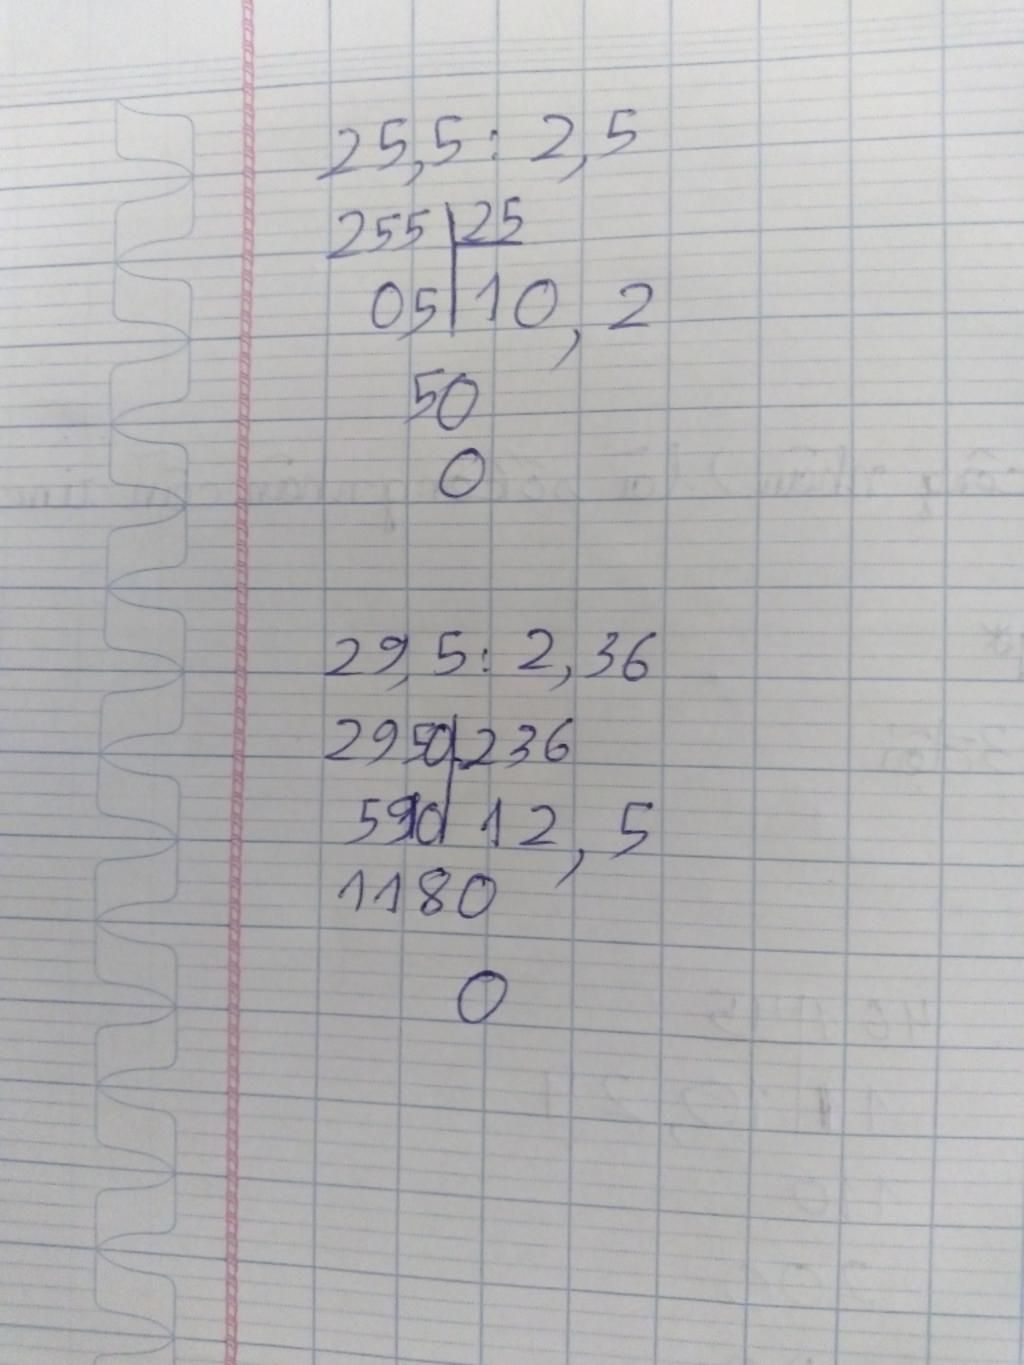 25,5 : 2,5
255 | 25
05 | 10,2
50
0
29,5 : 2,36
2950 | 236
590 | 12,5
1180
0